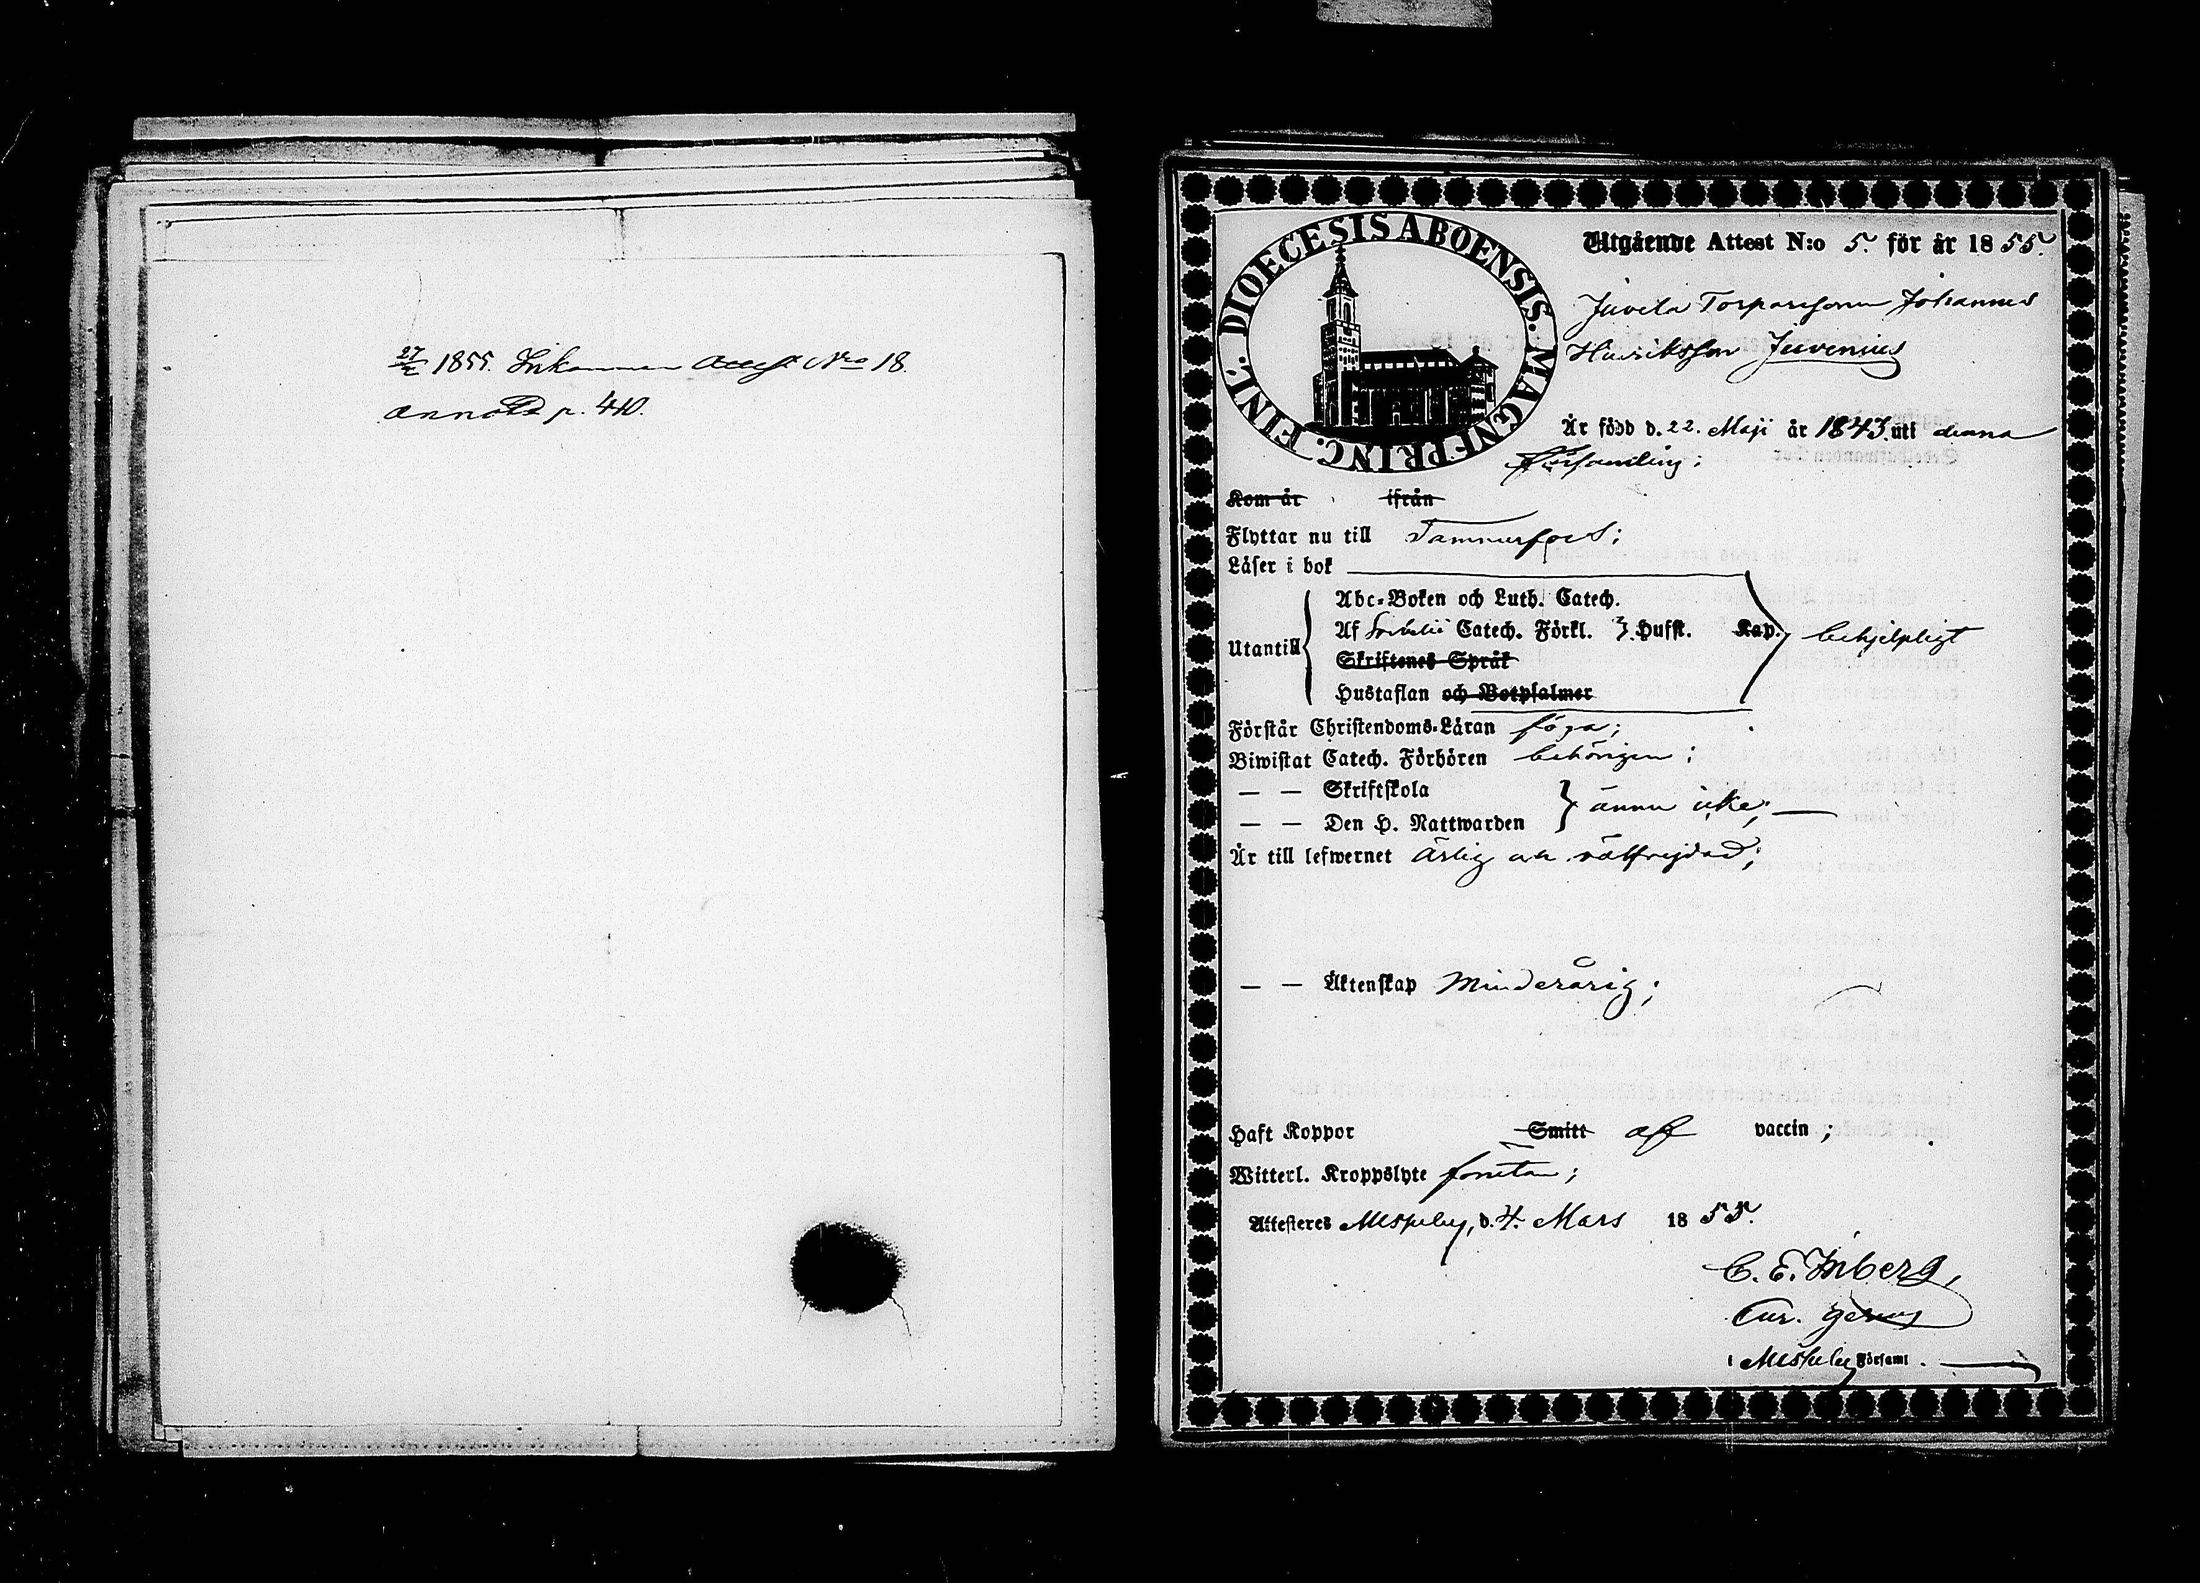 27/2 1855. Inkommen Attest Nro 18.
annoterd p. 440.
DIOECESIS ABOENSIS. MAGNI PRINC. FINL.
Utgående Attest N:o 5. för år 1855.
Juvela Torparesonen Johannes
Henriksson Juvenius
Är född d. 22. Maji år 1843. uti denna
församling;
Kom år ifrån
Flyttar nu till Tammerfors;
Läser i bok
Abc-Boken och Luth. Catech.
Af Svebelii Catech. Förkl. 3. Hufst. Kap. behjelpligt
Utantill
Skriftenes Språk
Hustaflan och Botpsalmer
Förstår Christendoms-Läran föga;
Biwistat Catech. Förhören behörigen;
— — Skriftskola
ännu icke;
— — Den H. Nattwarden
Är till lefwernet ärlig och välfrejdad;
— — Äktenskap Minderårig;
Haft Koppor Smitt af vaccin;
Witterl. Kroppslyte förutan;
Attesteras Messuby, d. 4. Mars 1855.
C. E. Inberg,
Cur. gerens
i Messuby Församl.